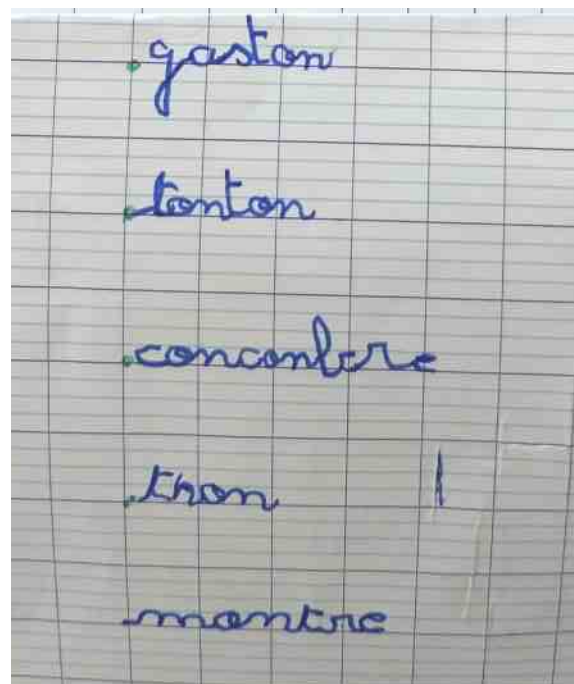 gaston
tonton
conconbre
thon
montre